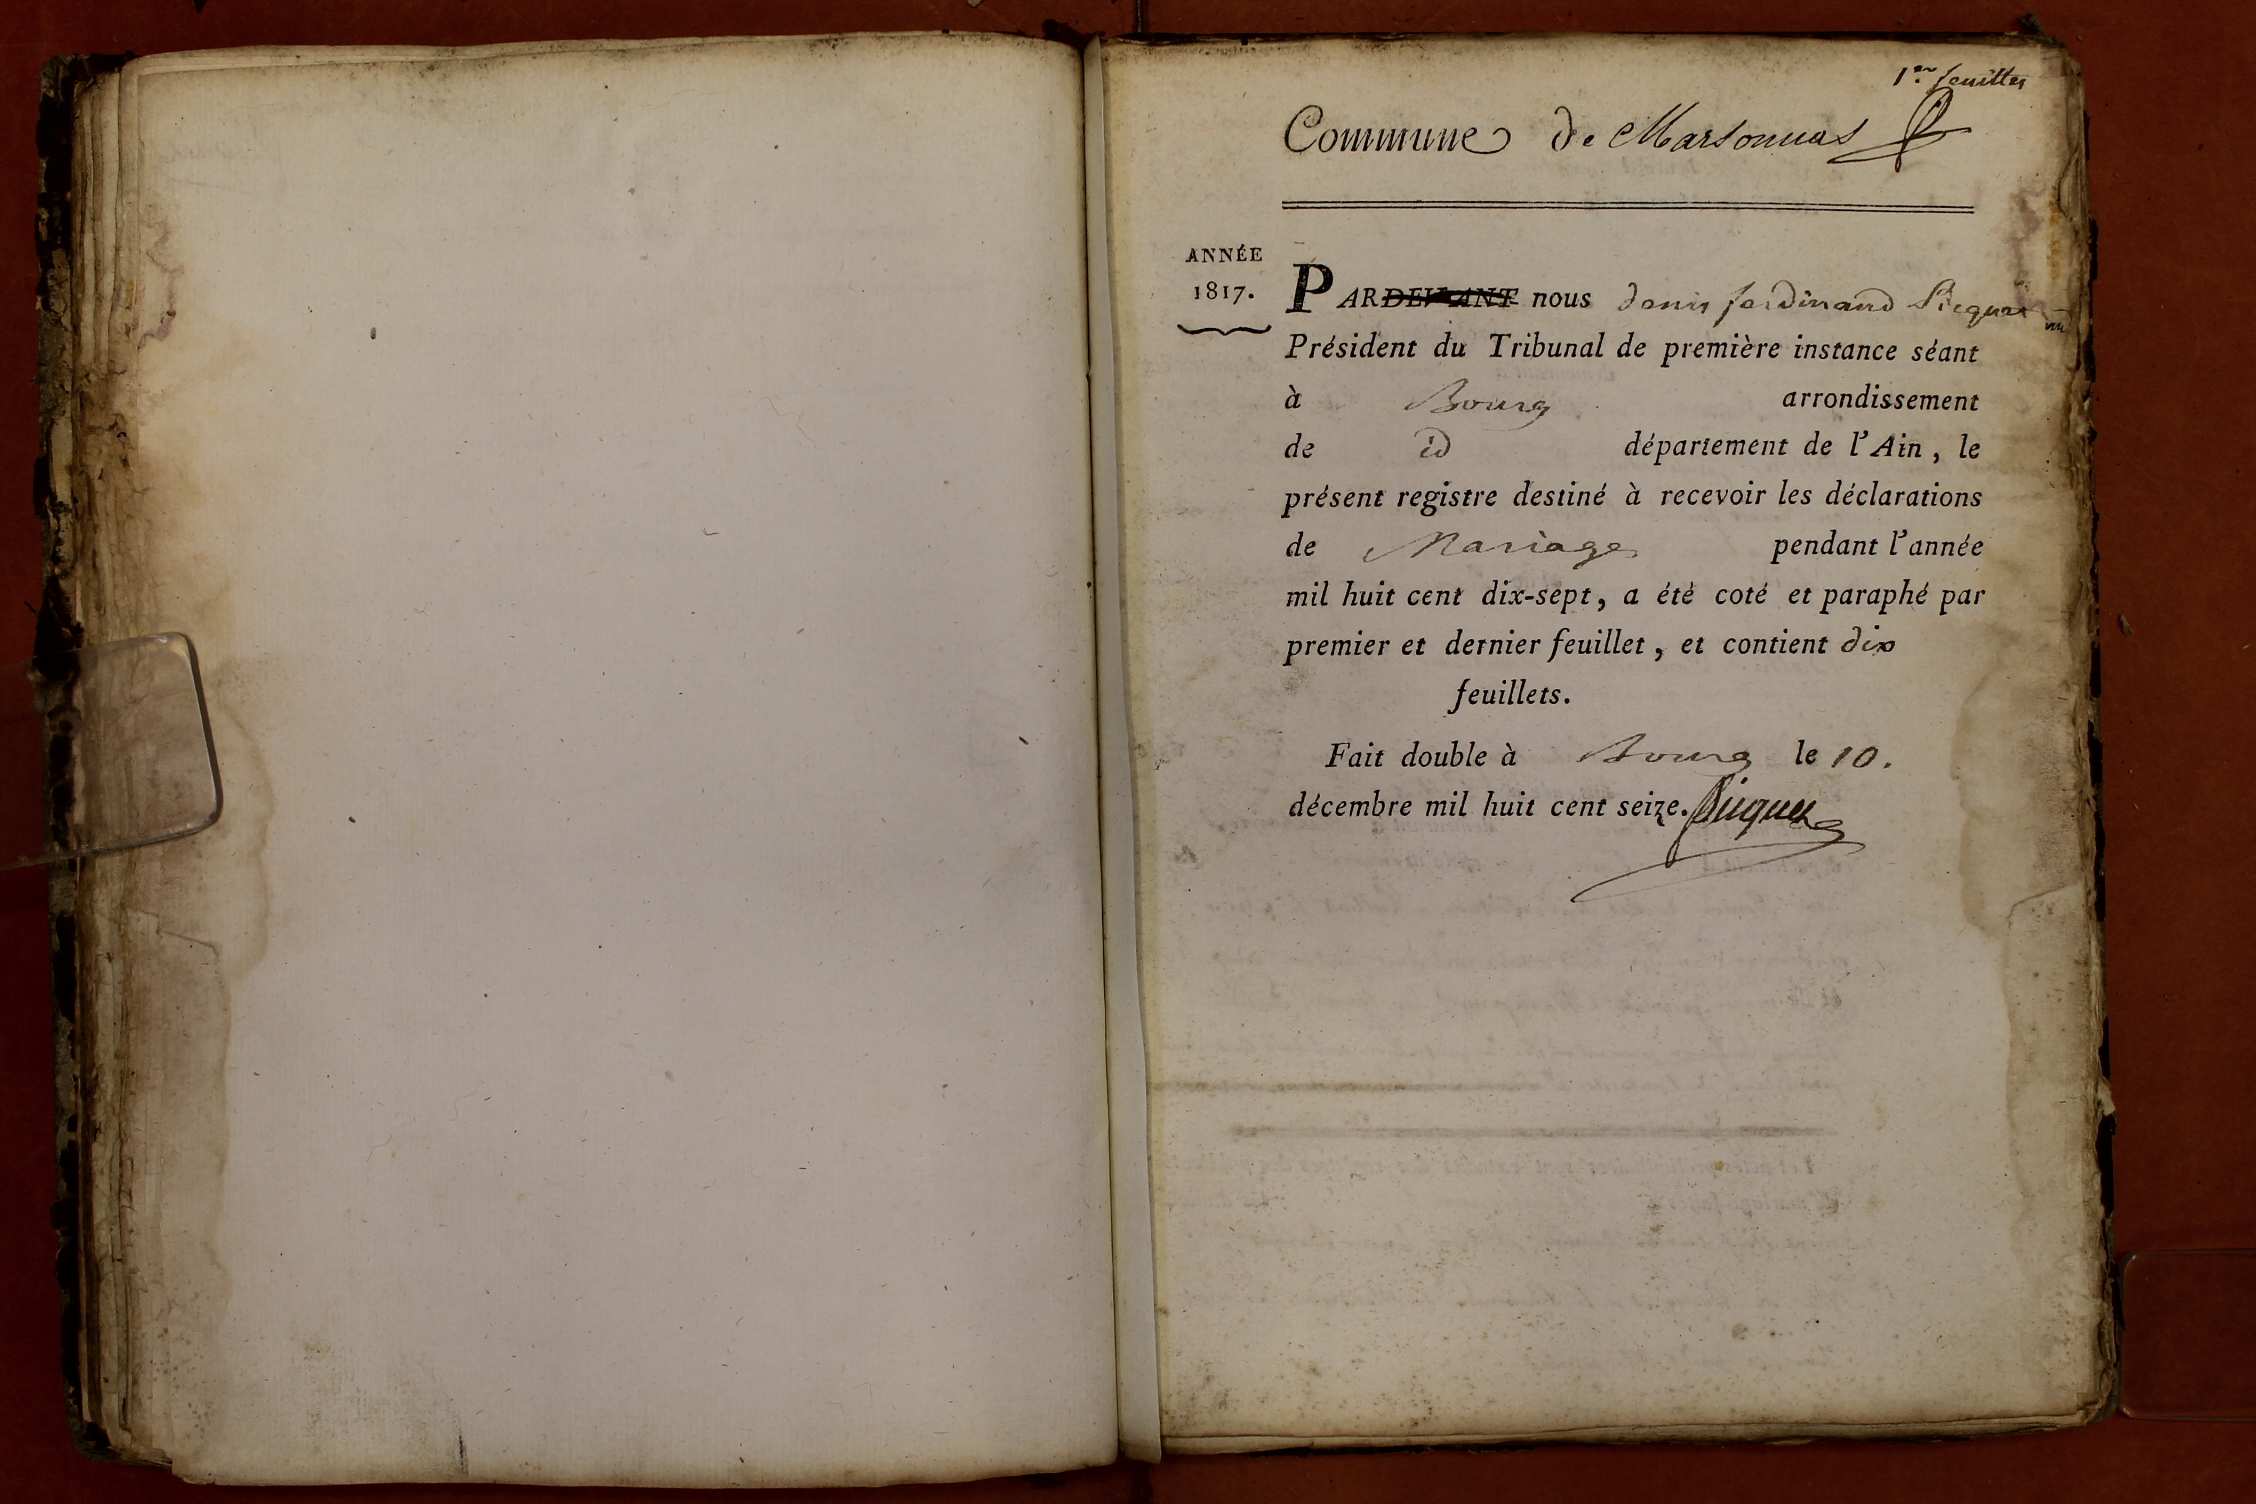 1er feuillet
Commune de Marsonnas
ANNÉE
1817.
PARDEVANT nous denis ferdinand Picquet
Président du Tribunal de première instance séant
à Bourg arrondissement
de id département de l'Ain, le
présent registre destiné à recevoir les déclarations
de Mariages pendant l'année
mil huit cent dix-sept, a été coté et paraphé par
premier et dernier feuillet, et contient dix
feuillets.
Fait double à Bourg le 10.
décembre mil huit cent seize. Picquet